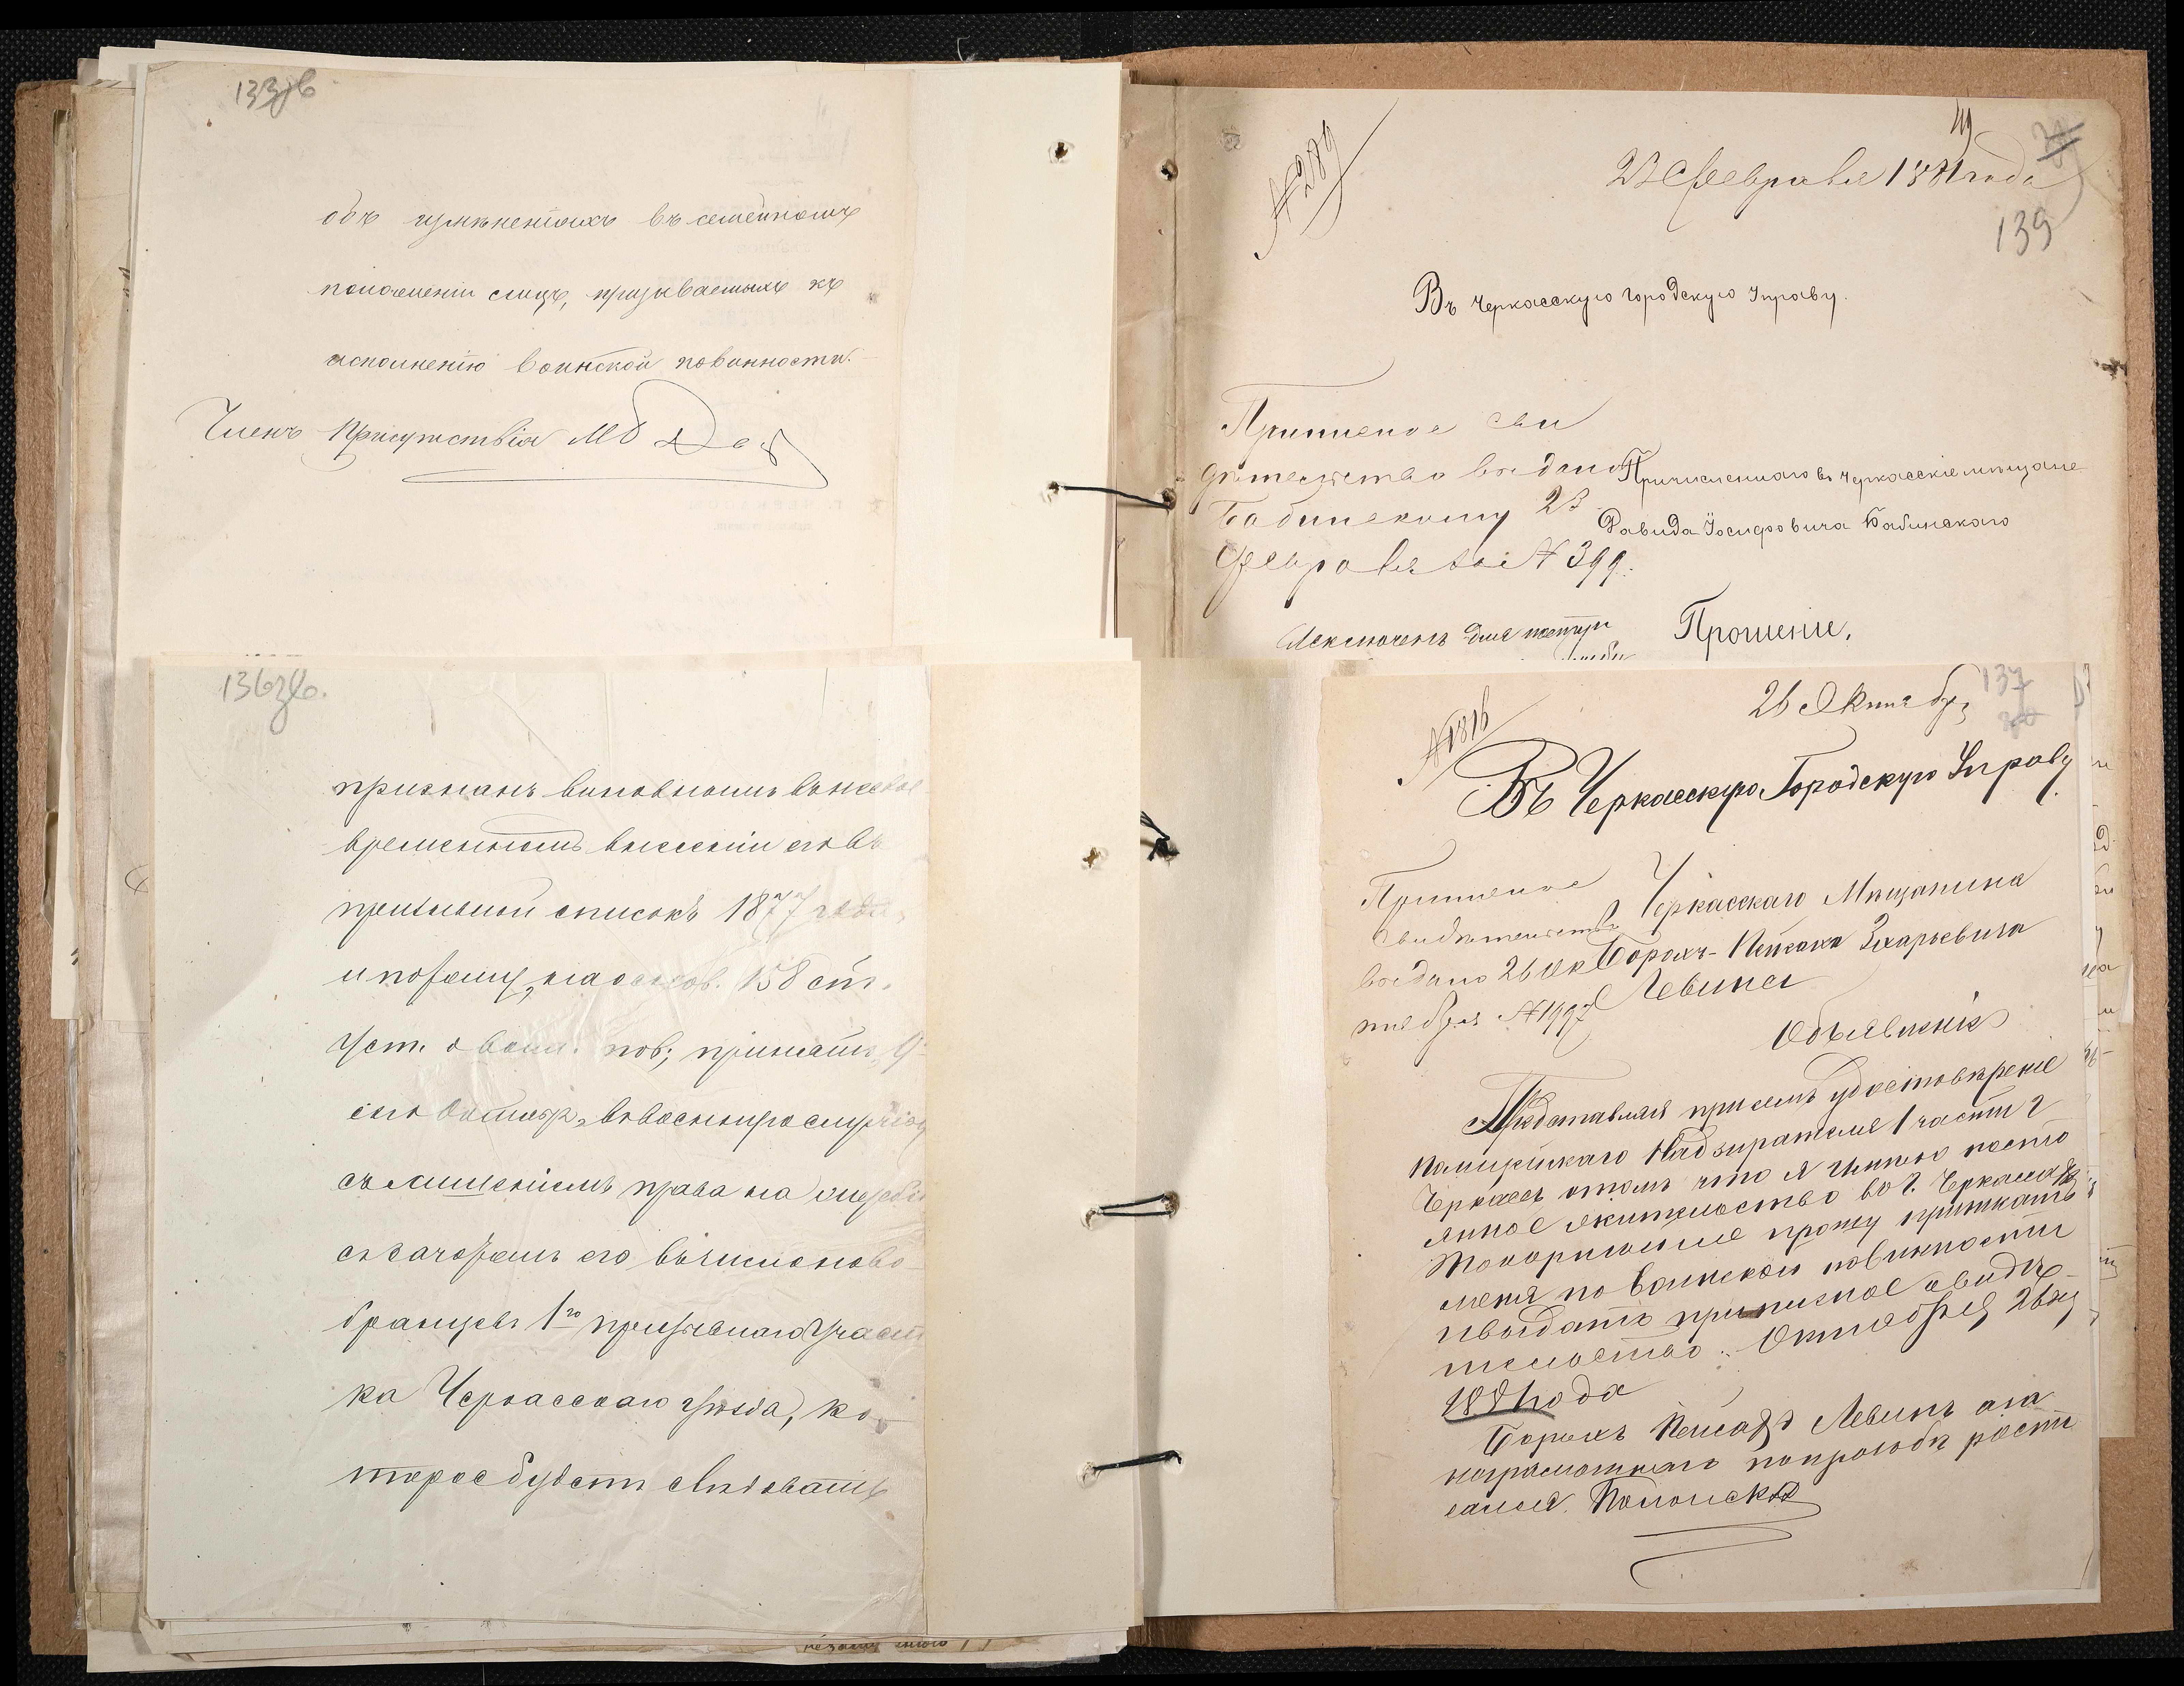 133зв
объ измѣненіяхъ въ семейномъ
положеніи лицъ, призываемыхъ къ
исполненію воинской повинности.
Членъ Присутствія
№289
23 Февраля 1881 года
139
Въ Черкасскую городскую Управу.
Приписное сви
дѣтельство выдано
Бабинскому 23
Февраля за № 399.
Причисленнаго въ Черкасскіе мѣщане
Давида Іосифовича Бабинскаго
Прошеніе,
136зв.
признанъ виновнымъ въ несвое
временномъ внесеніи его въ
призывной списокъ 1877 года,
и потому, на основ. 158 ст.
Уст. о воин. пов; принятъ, 9
сего Октяб, въ военную службу
съ лишеніемъ права на жребій
съ зачетомъ его въ число ново
бранцевъ 1го призывнаго участ
ка Черкасскаго уѣзда, ко-
торое будетъ слѣдовать
137
26 Октябр
№1816
Въ Черкасскую Городскую Управу
Приписное
свидѣтельство
выдано 26 Ок
тября №1997
Черкасскаго Мѣщанина
Борохъ-Пейсаха Захарьевича
Левина
Объявленіе
Представляя при семъ удостовѣреніе
Полицейскаго Надзирателя 1 части г
Черкассъ отомъ что я имѣю посто
янное жительство въ г. Черкассахъ
покорнѣйше прошу приписать
меня по воинской повинности
и выдать приписное свидѣ-
тельство. Октября 26 дня
1881 года
Борохъ Пейсахъ Левинъ а за
неграмотнаго по просьбѣ росписался